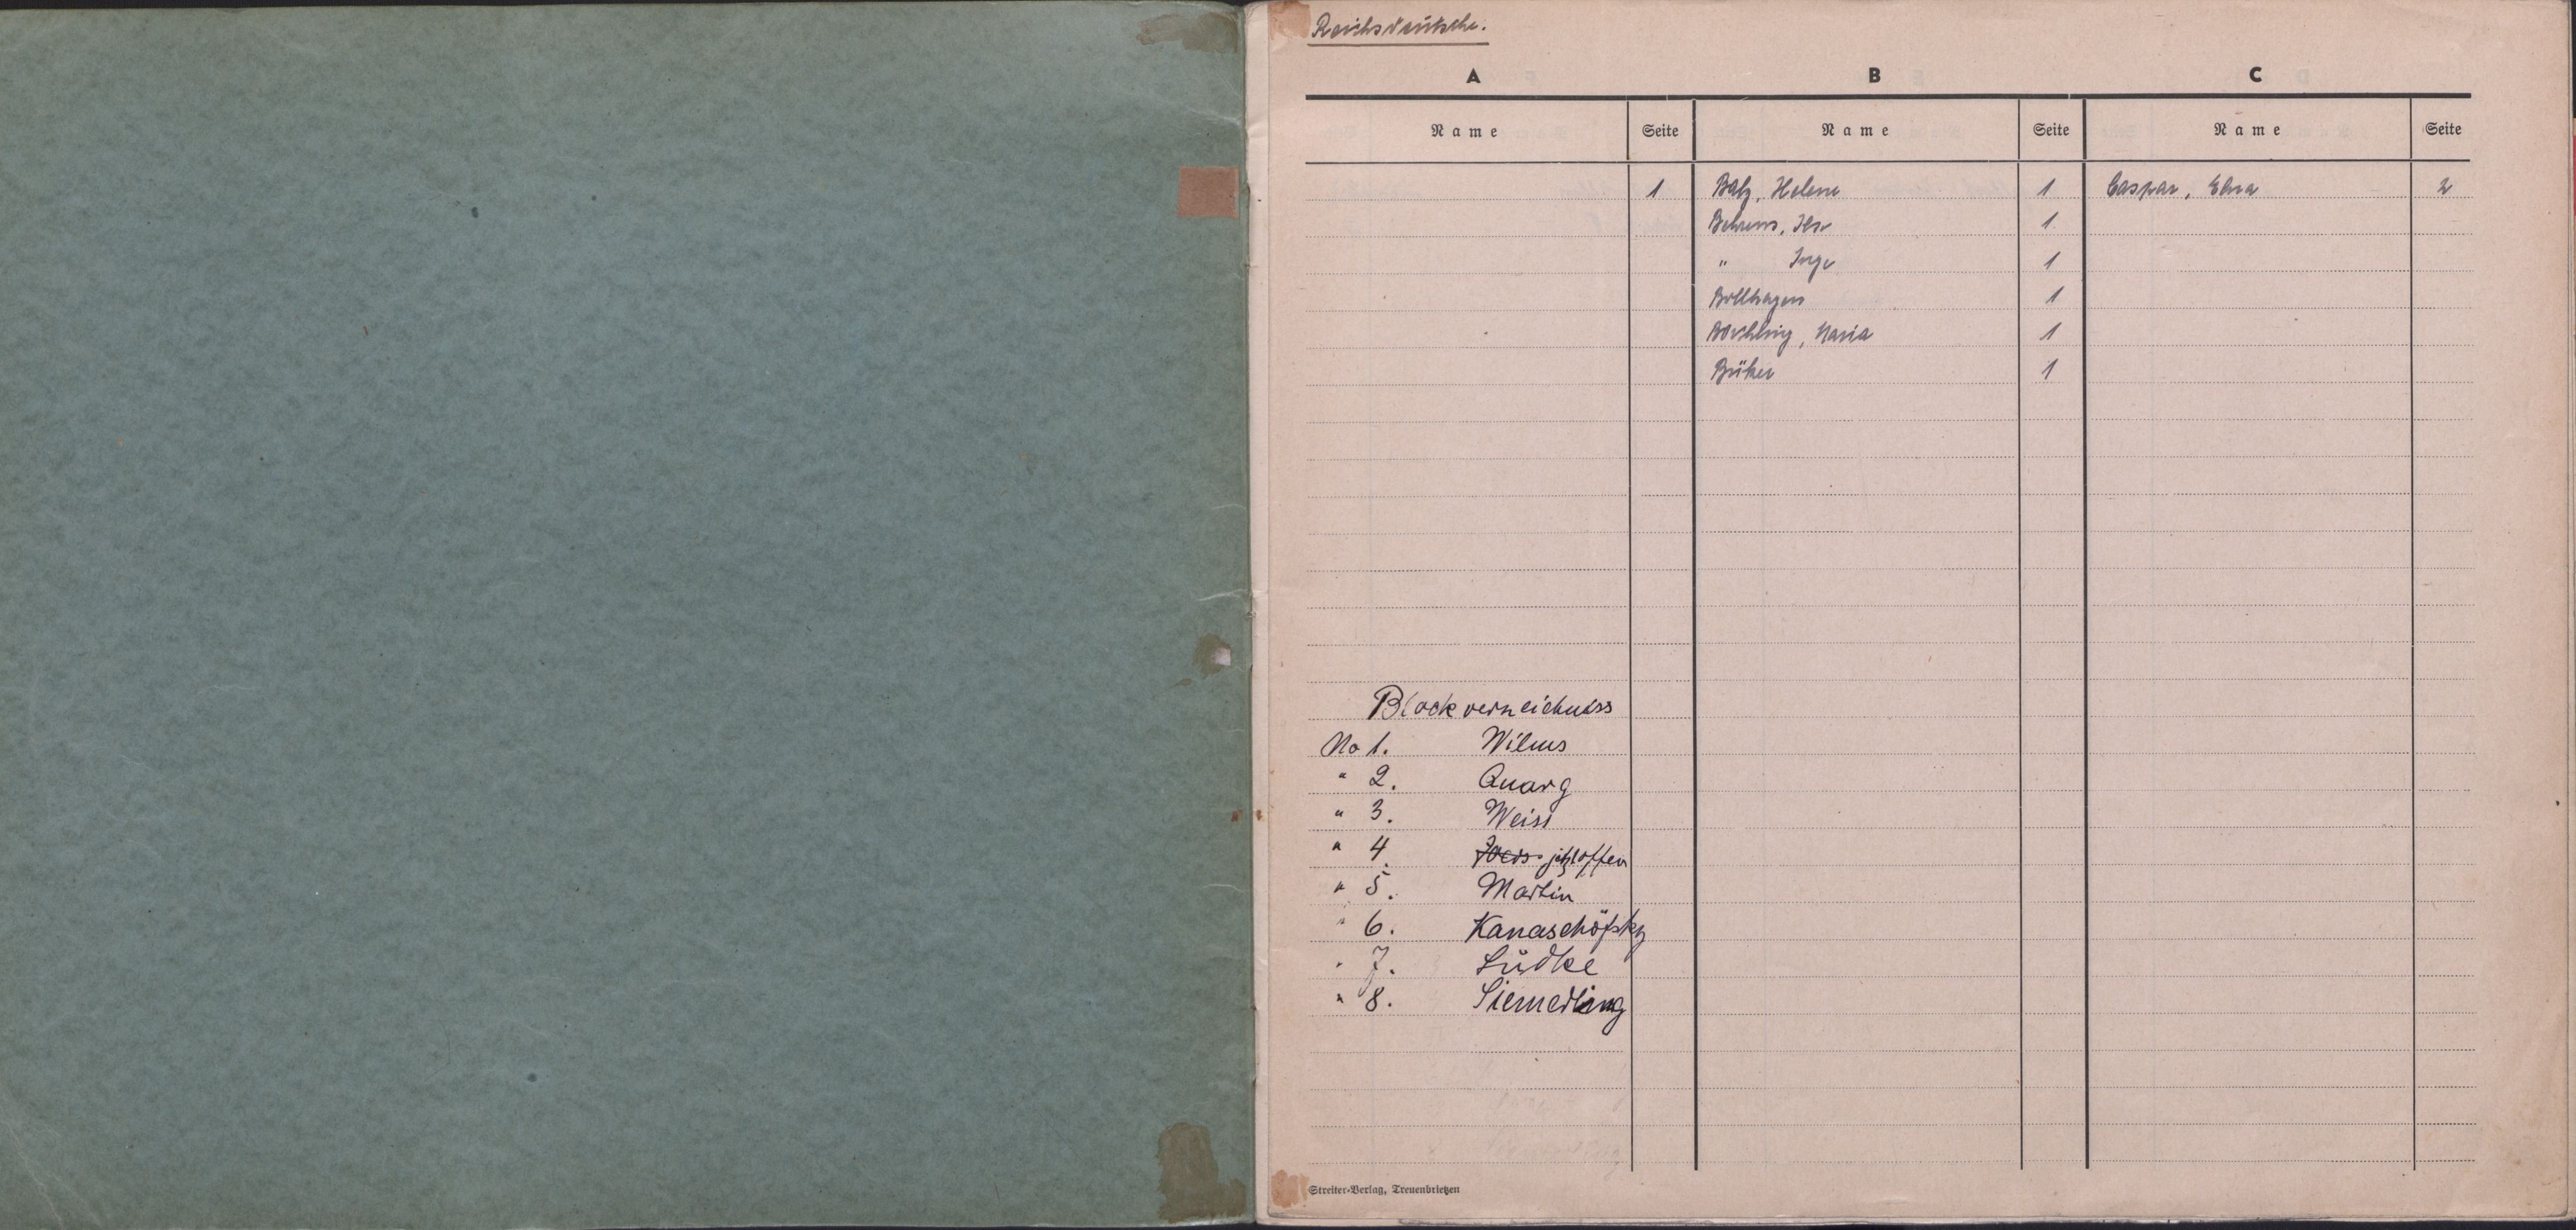 Reichsdeutsche.
A B C
Name Seite Name Seite Name Seite
1 Balz, Helene 1 Caspar, Elsa 2
Behrens, Ilse 1
" Inge 1
Bollhagen 1
Borchling, Maria 1
Büker 1
Blockverzeichniss
No 1. Wilms
" 2. Quarg
" 3. Weiss
" 4. jetzt offen
" 5. Martin
" 6. Kanaschöfsky
" 7. Lüdke
" 8. Siemerling
Streiter-Verlag, Treuenbrietzen